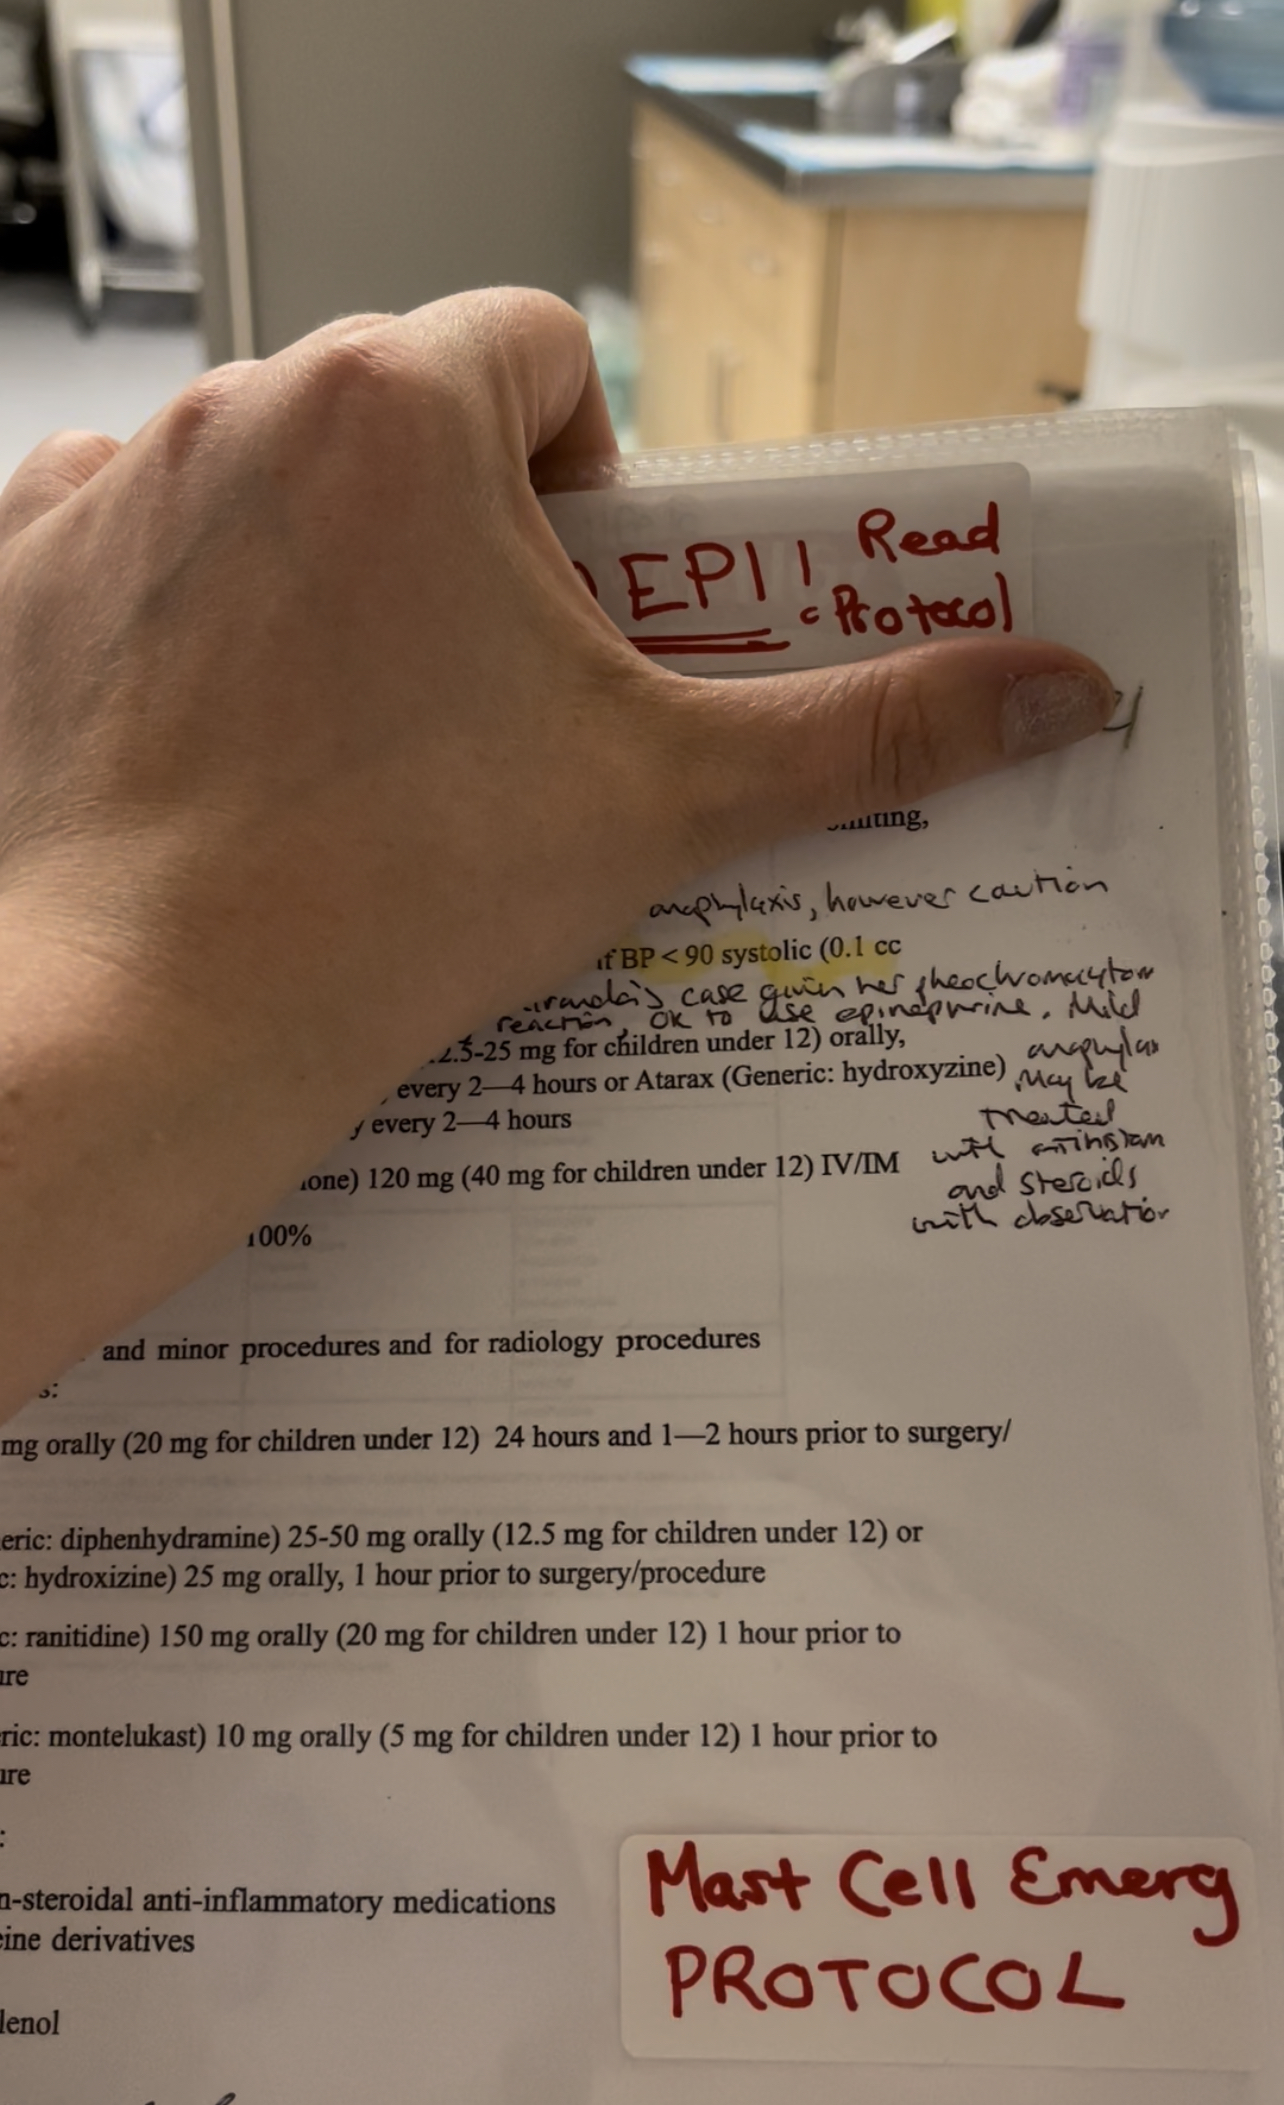 EPI! Read
Protocol
anaphylaxis, however caution
if BP < 90 systolic (0.1 cc
case given her pheochromocytom
reaction, OK to use epinephrine. Mild
2.5-25 mg for children under 12) orally,
anaphylax
every 2—4 hours or Atarax (Generic: hydroxyzine)
may be
every 2—4 hours
treated
with antihistam
one) 120 mg (40 mg for children under 12) IV/IM
and steroids
with observation
100%
and minor procedures and for radiology procedures
s:
mg orally (20 mg for children under 12) 24 hours and 1—2 hours prior to surgery/
eric: diphenhydramine) 25-50 mg orally (12.5 mg for children under 12) or
c: hydroxizine) 25 mg orally, 1 hour prior to surgery/procedure
c: ranitidine) 150 mg orally (20 mg for children under 12) 1 hour prior to
ure
ric: montelukast) 10 mg orally (5 mg for children under 12) 1 hour prior to
ure
:
n-steroidal anti-inflammatory medications
eine derivatives
lenol
Mast Cell Emerg
PROTOCOL